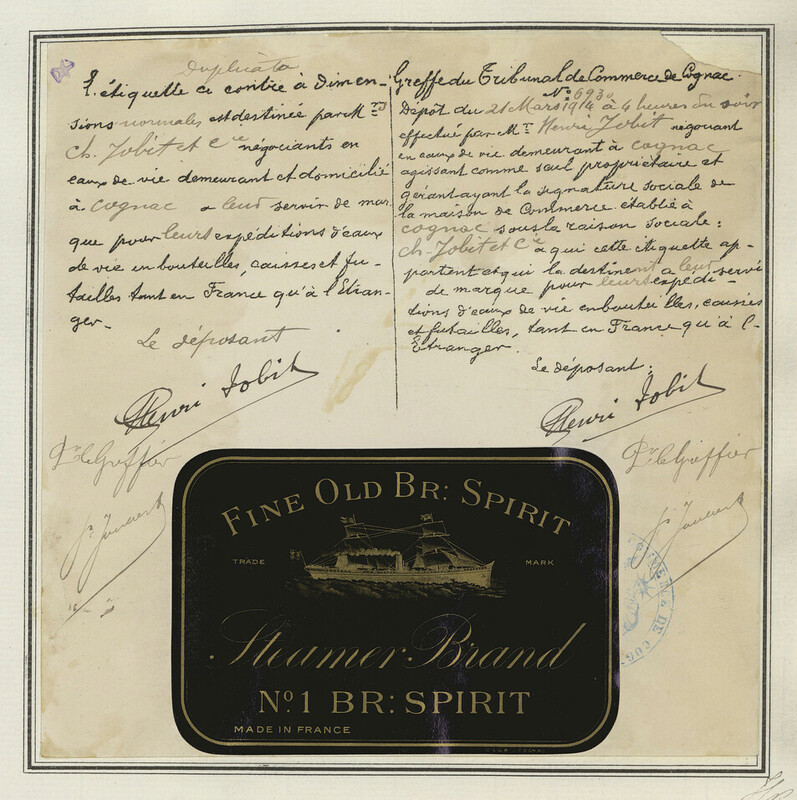 Duplicata
L'étiquette ci contre à Dimen-
sions normales est destinée par Mrs
Ch. Jobit et Cie négociants en
eaux de vie demeurant et domicilié
à Cognac a leur servir de mar
que pour leurs expéditions d'eaux
de vie en bouteilles, caisses et fu-
tailles tant en France qu'à l'Etran-
ger.
Le déposant
Henri Jobit
Pr le Greffier
Greffe du Tribunal de Commerce de Cognac.
No 6930
Dépôt du 21 Mars 1914 à 4 heures du soir
effectué par Mr Henri Jobit négociant
en eaux de vie demeurant à Cognac
agissant comme seul propriétaire et
gérant ayant la signature sociale de
la maison de Commerce établie à
Cognac sous la raison sociale:
Ch. Jobit et Cie à qui cette étiquette ap-
partient et qui la destinent a leur
servi
de marque pour leurs expédi-
tions d'eaux de vie en bouteilles, caisses
et futailles, tant en France qu'à l'-
Etranger.
Le déposant:
Henri Jobit
Pr le Greffier
FINE OLD BR: SPIRIT
TRADE MARK
Steamer Brand
No 1 BR: SPIRIT
MADE IN FRANCE